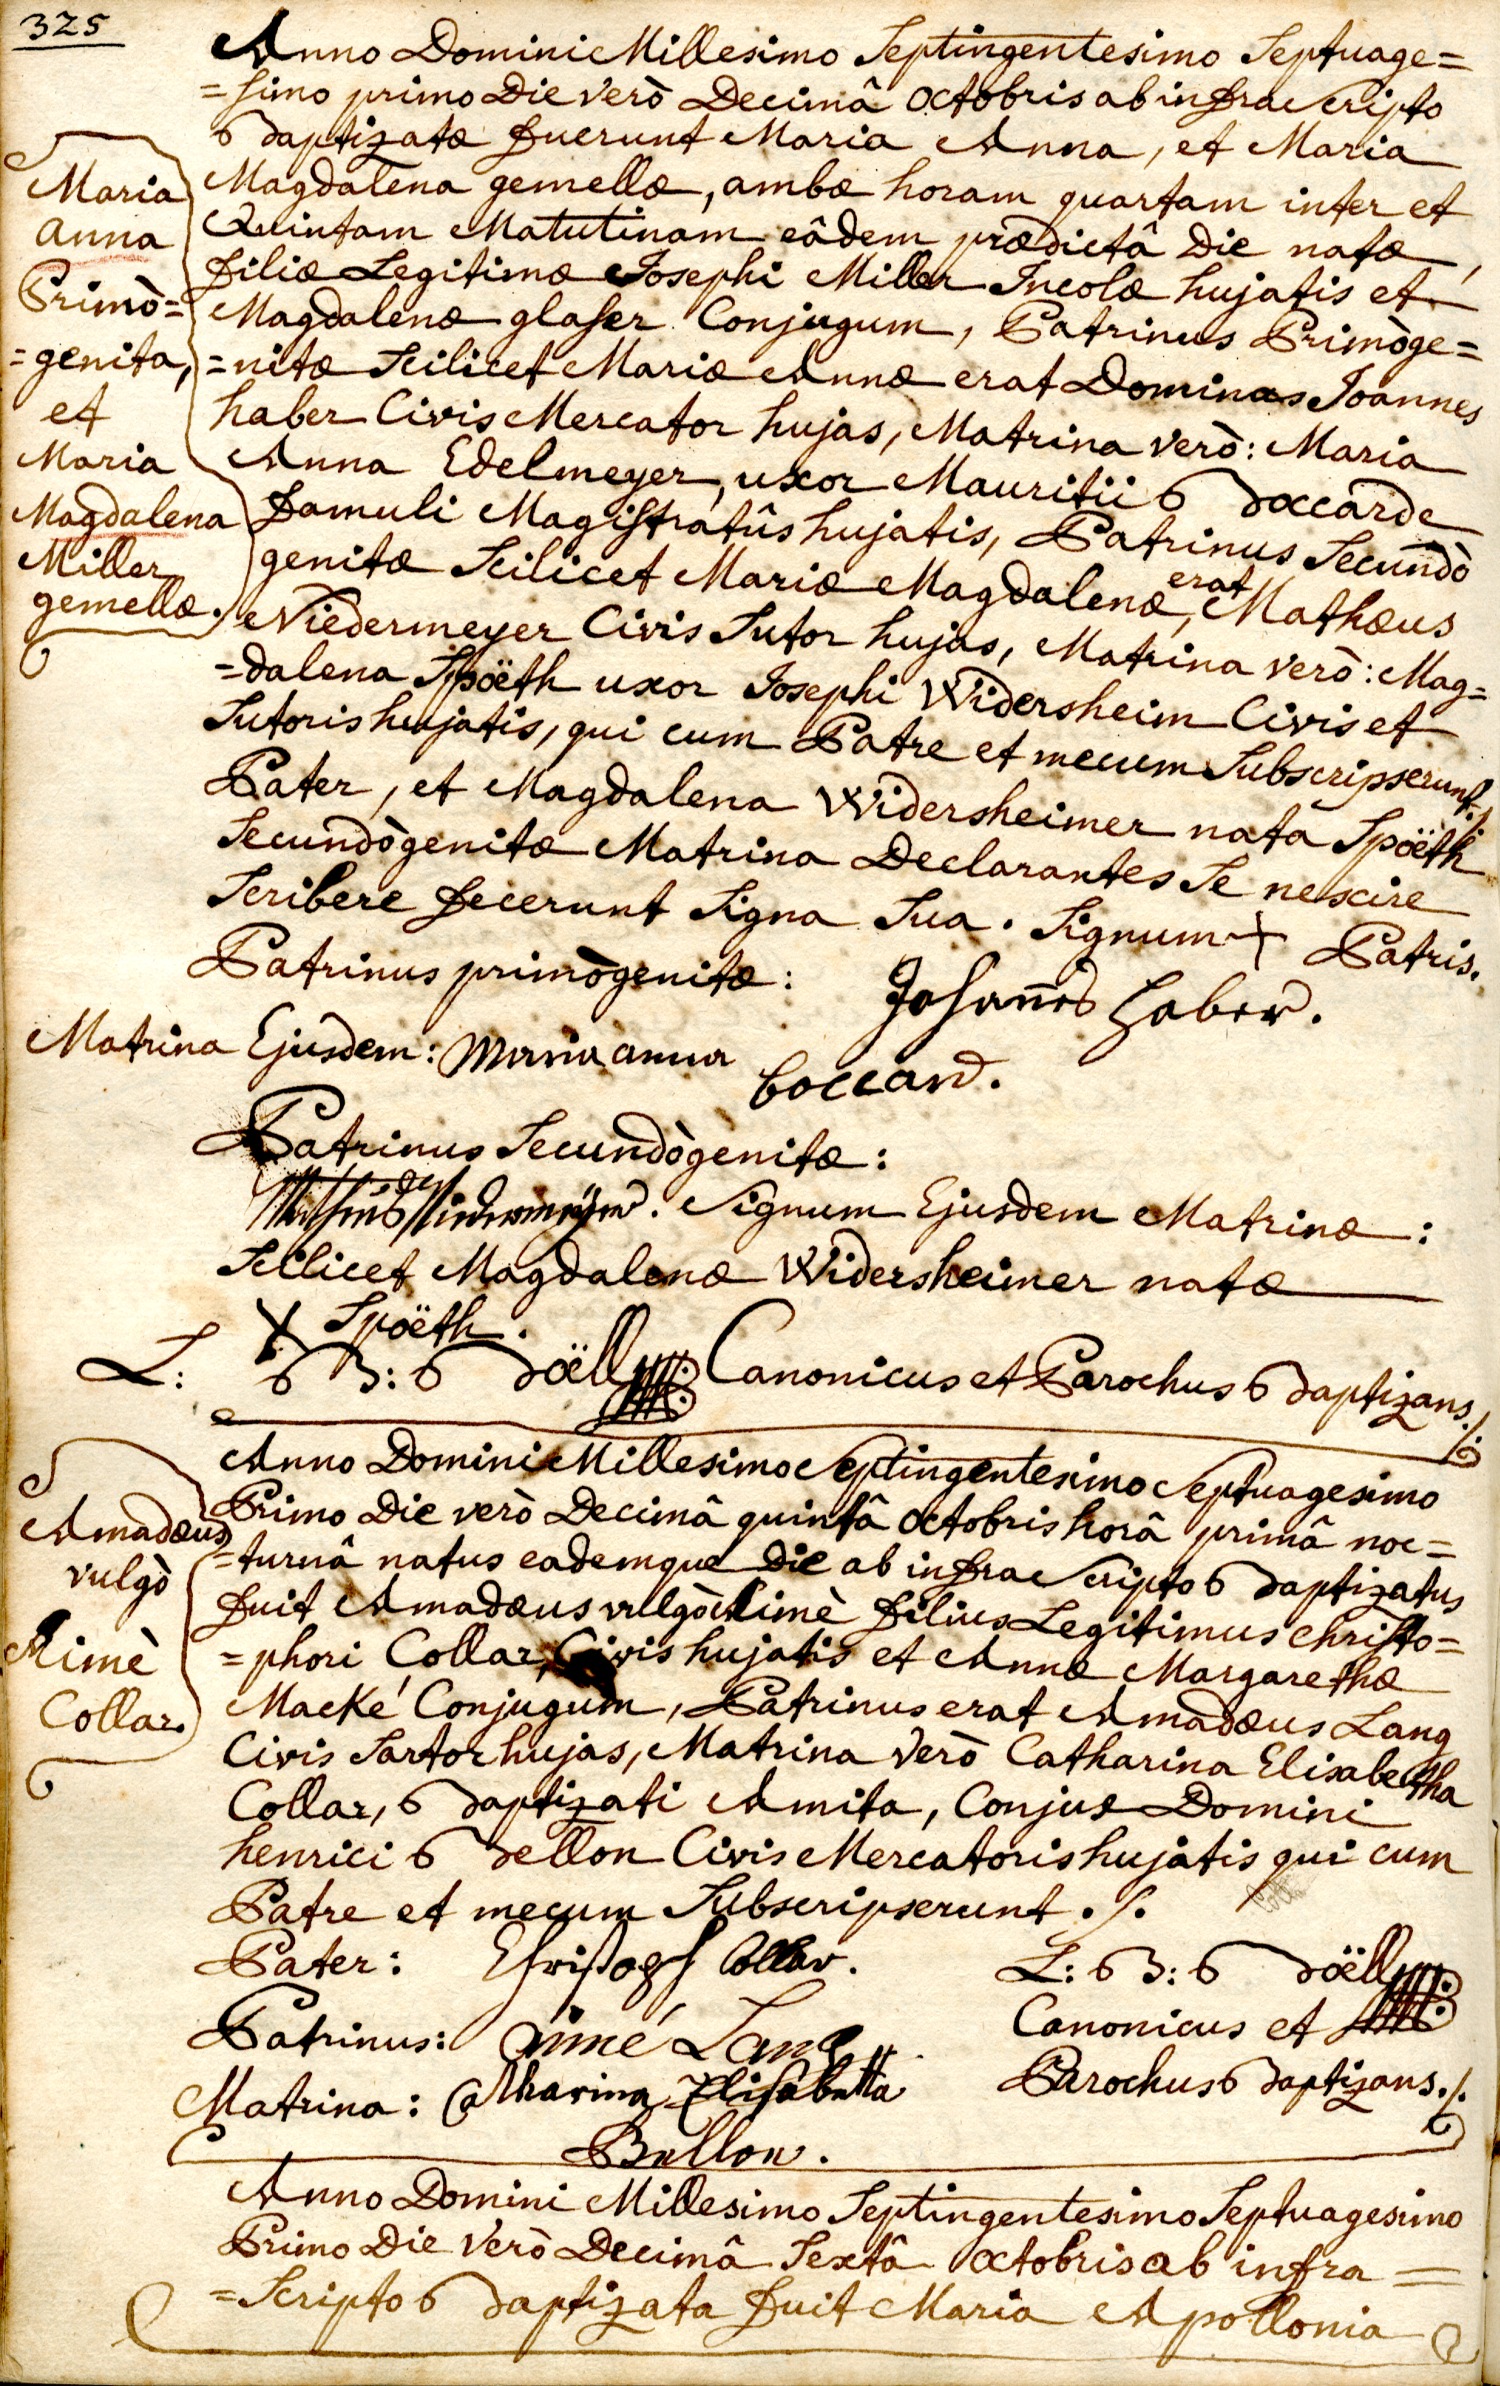 325
Anno Domini Millesimo Septingentesimo Septuage=
=simo primo Die verò Decimâ Octobris ab infra Scripto
Baptizatæ fuerunt Maria Anna, et Maria
Magdalena gemellæ, ambæ horam quartam inter et
Quintam Matutinam eâdem prædictâ Die natæ,
filiæ Legitimæ Josephi Miller Incolæ hujatis et
Magdalenæ glaser Conjugum, Patrinus Primòge=
=nitæ Scilicet Mariæ Annæ erat Dominus Joannes
haber Civis Mercator hujas, Matrina verò: Maria
Anna Edelmeyer, uxor Mauritii Boccarde
famuli Magistratûs hujatis, Patrinus Secundò
genitæ Scilicet Mariæ Magdalenæ, erat Mathæus
Niedermeyer Civis Sutor hujas, Matrina verò: Mag=
=dalena Spöëth uxor Josephi Widersheim Civis et
Sutoris hujatis, qui cum Patre et mecum Subscripserunt ./.
Pater, et Magdalena Widersheimer nata Spöëth
Secundògenitæ Matrina Declarantes Se nescire
Scribere fecerunt Signa Sua. Signum + Patris.
Maria
Anna
Primò=
=genita,
et
Maria
Magdalena
Miller
gemellæ.
Patrinus primògenitæ: Johannes Haber.
Matrina Ejusdem: Maria anna
boccard.
Patrinus Secundògenitæ:
Niedermeyer. Signum Ejusdem Matrinæ:
Scilicet Magdalenæ Widersheimer natæ
X Spöëth.
L: B: Böëll Canonicus et Parochus Baptizans ./.
Anno Domini Millesimo Septingentesimo Septuagesimo
Primo Die verò Decimâ quintâ Octobris horâ primâ noc=
=turnâ natus eademque Die ab infra Scripto Baptizatus
fuit Amadæus vulgò Aimè filius Legitimus Christo=
=phori Collar, Civis hujatis et Annæ Margarethæ
Macké Conjugum, Patrinus erat Amadæus Lang
Civis Sartor hujas, Matrina verò Catharina Elisabetha
Collar, Baptizati Amita, Conjux Domini
henrici Bellon Civis Mercatoris hujatis qui cum
Patre et mecum Subscripserunt ./.
Amadæus
vulgò
Aimè
Collar.
Pater: Christoph Collar.
Patrinus: aimé Lang
Matrina: Catharina Elisabetta
Bellon.
L: B: Böëll
Canonicus et
Parochus Baptizans ./.
Anno Domini Millesimo Septingentesimo Septuagesimo
Primo Die Verò Decimâ Sextâ Octobris ab infra =
=Scripto Baptizata fuit Maria Apollonia